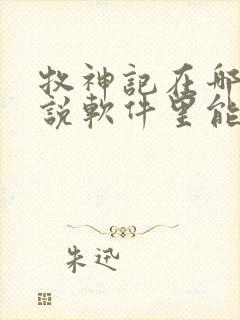 牧神記在哪
說軟件里能
朱迅